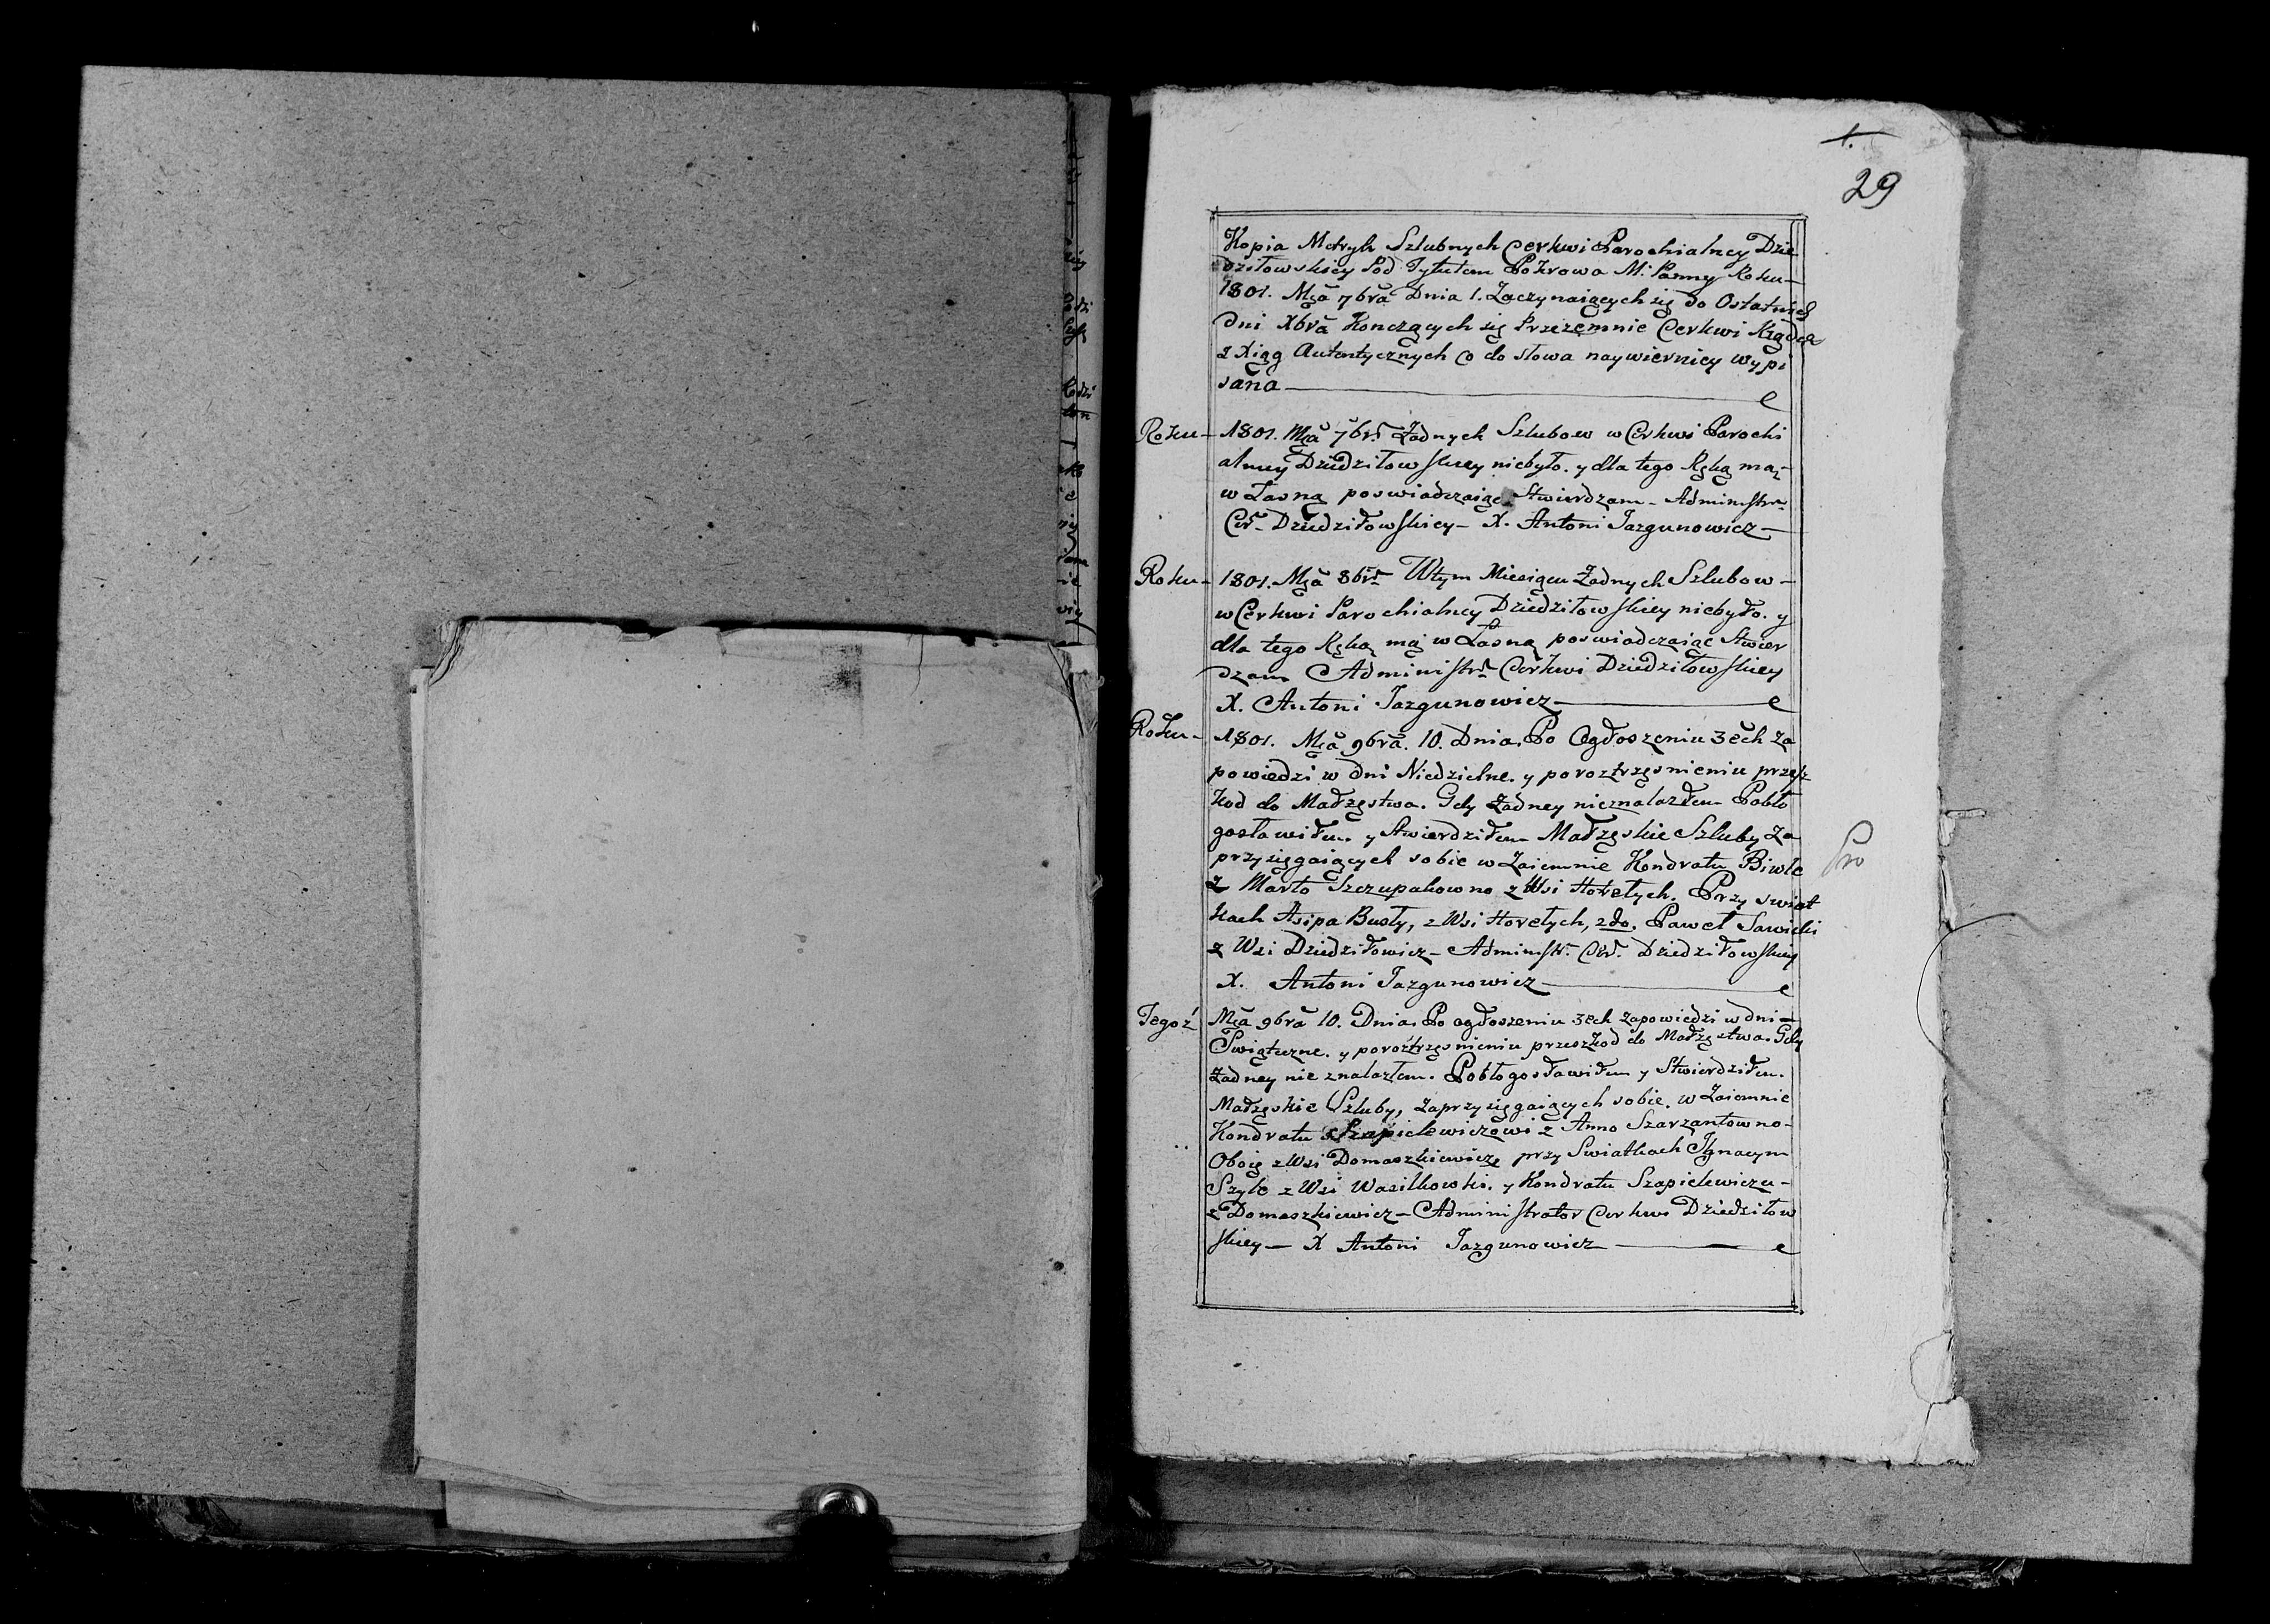 29
Kopia Metryk Szlubnych Cerkwi Parochialney Dzie
dziłowskiey Pod Tytułem Pokrowa M. Panny Roku
1801. Mça 7bra Dnia 1. Zaczynaiących się do Ostatnich
dni Xbra Konczących się Przezemnie Cerkwi Rządcę
z Xiąg Autentycznych Co do słowa naywierniey wypi
sana
Roku 1801. Mça 7br. Żadnych Szlubow w Cerkwi Parochi
alney Dziedziłowskiey niebyło. y dla tego Ręką mą
własną poswiadczaiąc Stwierdzam Administr.
Cer. Dziedziłowskiey X. Antoni Jazgunowicz
Roku 1801. Mça 8br. W tym Miesiącu Żadnych Szlubow
w Cerkwi Parochialney Dziedziłowskiey niebyło. y
dla tego Ręką mą własną poswiadczaiąc Stwier
dzam Administr. Cerkwi Dziedziłowskiey
X. Antoni Jazgunowicz
Roku 1801. Mça 9bra. 10. Dnia. Po Ogłoszeniu 3ech Za
powiedzi w dni Niedzielne. y poroztrzęsnieniu przesz
kod do Małzęstwa. Gdy Żadney nieznalazłem Pobło
gosławiłem y Stwierdziłem Małzęskie Szluby Za
przysięgaiących sobie wzaiemnie Kondratu Biwle
z Marto Szczupakowno z Wsi Horełych. Przy swiat
kach Asipa Busły, z Wsi Horełych, 2do. Paweł Sawicki
z Wsi Dziedziłowicz Administr. Cer. Dziedziłowskiey
X. Antoni Jazgunowicz
Pro
Tegoż Mça 9bra 10. Dnia. Po ogłoszeniu 3ech Zapowiedzi w dni
Swiąteczne. y poroztrzęsnieniu przeszkod do Małzęstwa. Gdy
Żadney nie znalazłem. Pobłogosławiłem y Stwierdziłem.
Małzęskie Szluby, Zaprzysięgaiących sobie. wzaiemnie
Kondratu Szapielewiczowi z Anno Szarzantowno
Oboię z Wsi Domaszkiewicz przy Swiatkach Ignacym
Szyle z Wsi Wasilkowki. y Kondratu Szapielewiczu
z Domaszkiewicz Administrator Cerkwi Dziedziłow
skiey X Antoni Jazgunowicz